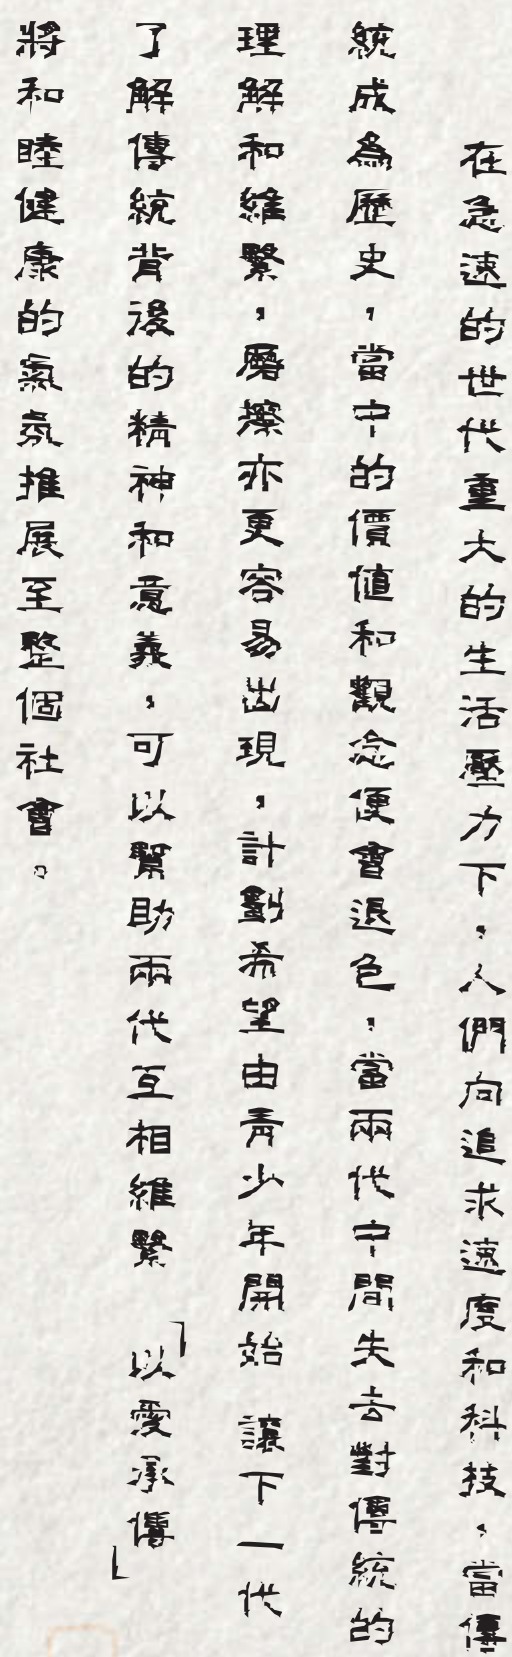 在急速的世代重大的生活壓力下，人們向追求速度和科技，當傳
統成為歷史，當中的價值和觀念便會退色，當兩代中間失去對傳統的
理解和維繫，磨擦亦更容易出現，計劃希望由青少年開始 讓下一代
了解傳統背後的精神和意義，可以幫助兩代互相維繫 「以愛承傳」
將和睦健康的氣氛推展至整個社會。